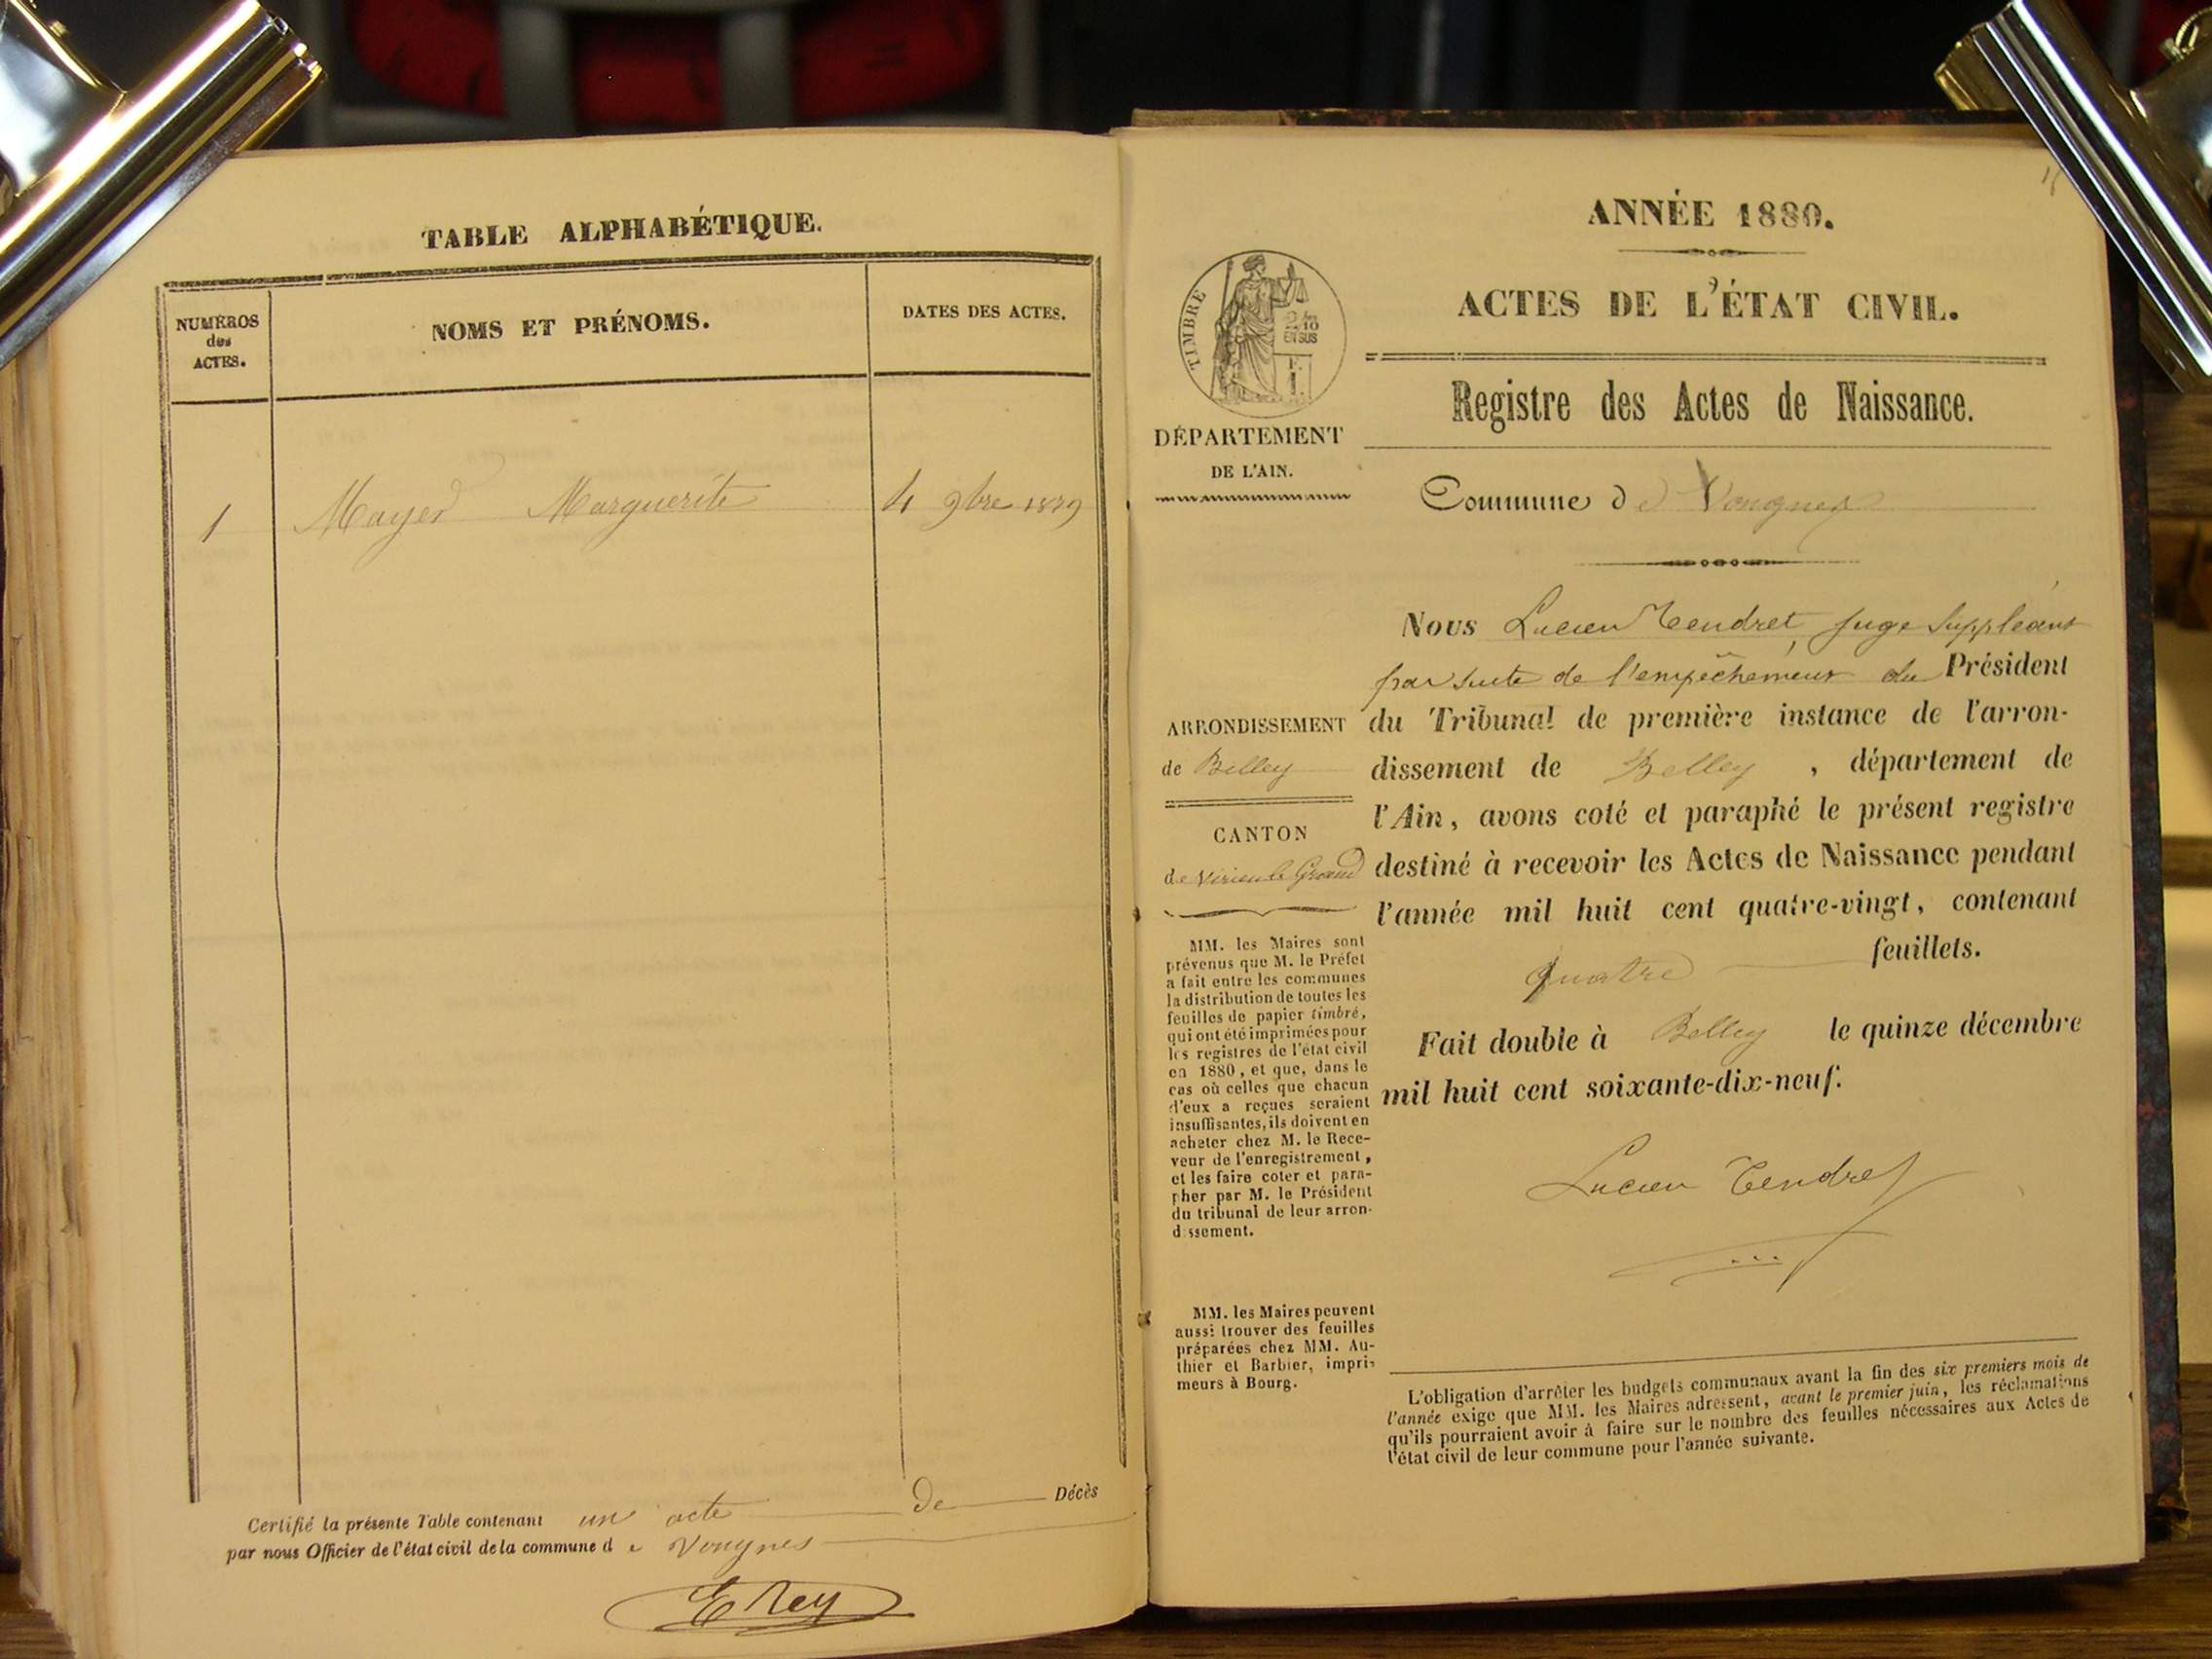 TABLE ALPHABÉTIQUE.
NUMÉROS
des
ACTES.
NOMS ET PRÉNOMS.
DATES DES ACTES.
1 Mayer Marguerite 4 9bre 1879
Certifié la présente Table contenant un acte de Décès
par nous Officier de l'état civil de la commune d e Vongnes
E Rey
ANNÉE 1880.
ACTES DE L'ÉTAT CIVIL.
Registre des Actes de Naissance.
Commune de Vongnes
TIMBRE
2/10
EN SUS
DÉPARTEMENT
DE L'AIN.
ARRONDISSEMENT
de Belley
CANTON
de Virieu le Grand
MM. les Maires sont
prévenus que M. le Préfet
a fait entre les communes
la distribution de toutes les
feuilles de papier timbré,
qui ont été imprimées pour
les registres de l'état civil
en 1880, et que, dans le
cas où celles que chacun
d'eux a reçues seraient
insuffisantes, ils doivent en
acheter chez M. le Rece-
veur de l'enregistrement,
et les faire coter et para-
pher par M. le Président
du tribunal de leur arron-
dissement.
MM. les Maires peuvent
aussi trouver des feuilles
préparées chez MM. Au-
thier et Barbier, impri-
meurs à Bourg.
Nous Lucien Tendret, juge suppléant
par suite de l'empêchement du Président
du Tribunal de première instance de l'arron-
dissement de Belley, département de
l'Ain, avons coté et paraphé le présent registre
destiné à recevoir les Actes de Naissance pendant
l'année mil huit cent quatre-vingt, contenant
quatre feuillets.
Fait double à Belley le quinze décembre
mil huit cent soixante-dix-neuf.
Lucien Tendret
L'obligation d'arrêter les budgets communaux avant la fin des six premiers mois de
l'année exige que MM. les Maires adressent, avant le premier juin, les réclamations
qu'ils pourraient avoir à faire sur le nombre des feuilles nécessaires aux Actes de
l'état civil de leur commune pour l'année suivante.